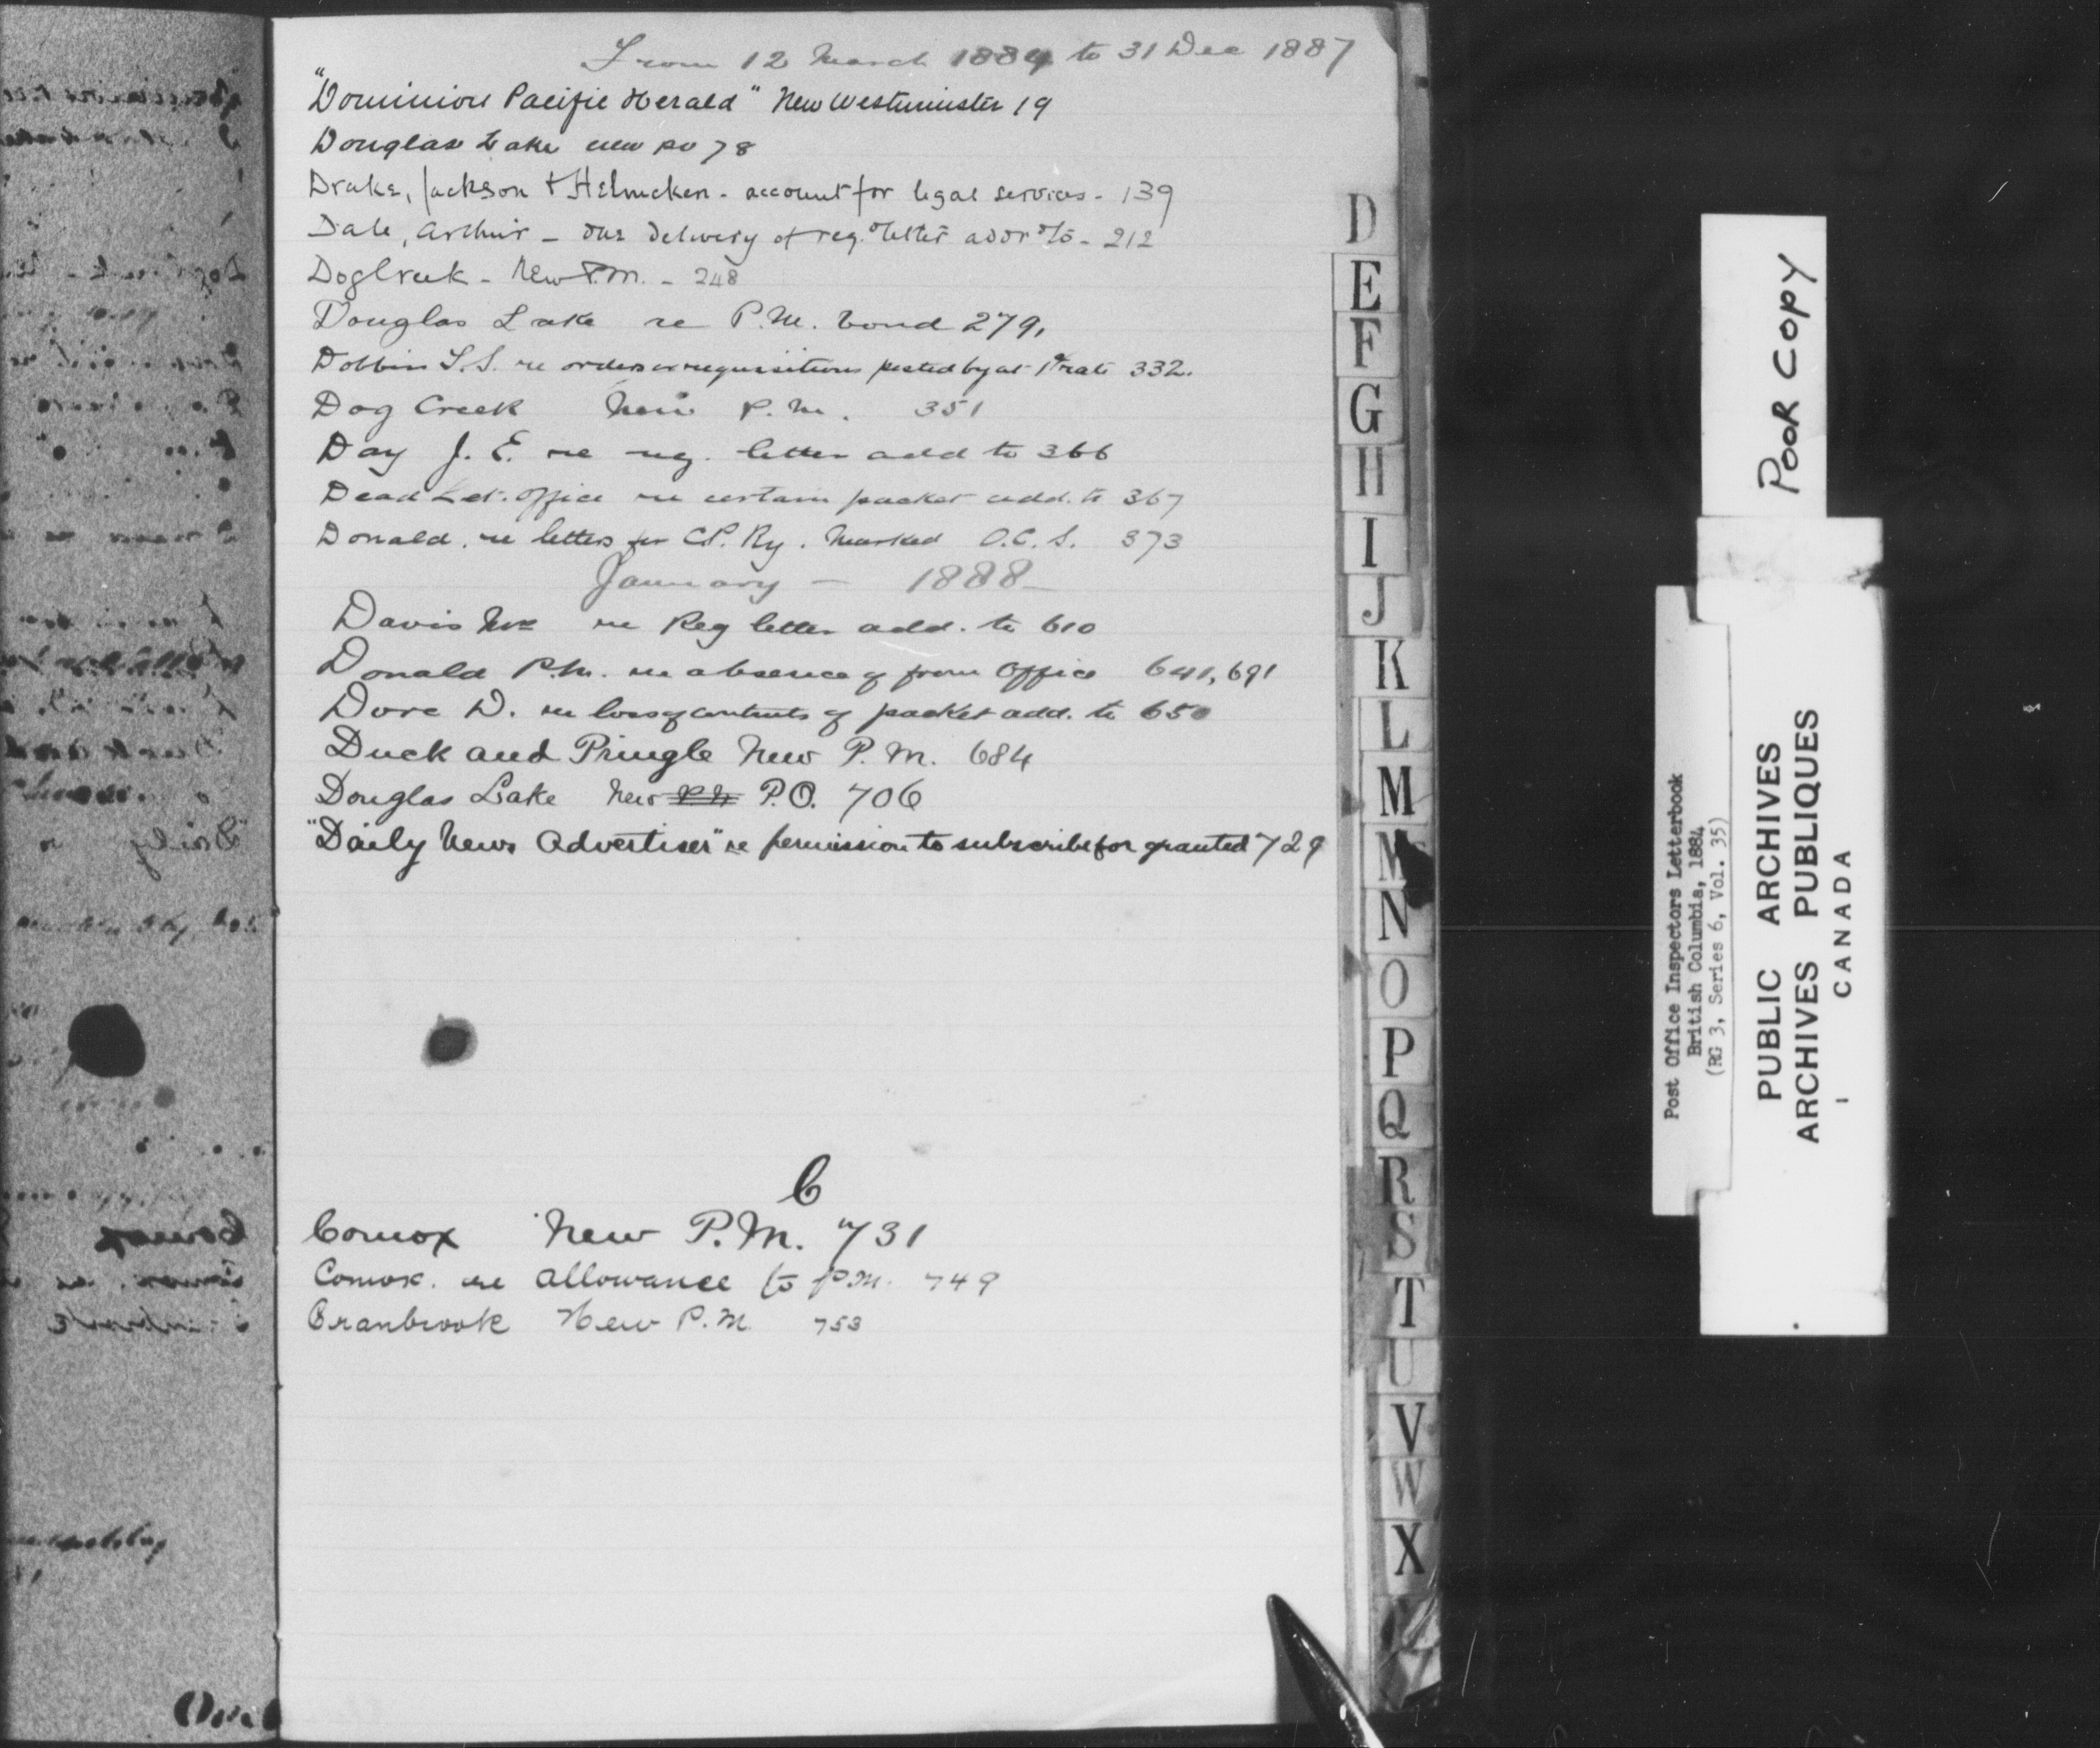 From 12 March 1884 to 31 Dec 1887
"Dominion Pacific Herald" New Westminster 19
Douglas Lake new po 78
Drake, Jackson & Helmcken - account for legal services - 139
Dale, Arthur - due delivery of reg. letter addr to - 212
Dog Creek - New P.M. - 248
Douglas Lake re P.M. bond 279,
Dobbin S.S. re orders or requisitions posted by at 1¢ rate 332.
Dog Creek New P.M. 351
Day J. E. re reg. letter add to 366
Dead Let. Office re certain packet add. to 367
Donald. re letters for C.P. Ry. Marked O.C.S. 373
January - 1888
Davis re Reg letter add. to 610
Donald P.M. re absence of from Office 641, 691
Dore D. re loss of contents of packet add. to 650
Duck and Pringle New P.M. 684
Douglas Lake New P.O. 706
"Daily News Advertiser" re permission to subscribe for granted 729
C
Comox New P.M. 731
Comox. re allowance to P.M. 749
Cranbrook New P.M. 753
D
E
F
G
H
I
J
K
L
M
M
N
O
P
Q
R
S
T
U
V
W
X
POOR COPY
Post Office Inspectors Letterbook
British Columbia, 1884
(RG 3, Series 6, Vol. 35)
PUBLIC ARCHIVES
ARCHIVES PUBLIQUES
CANADA